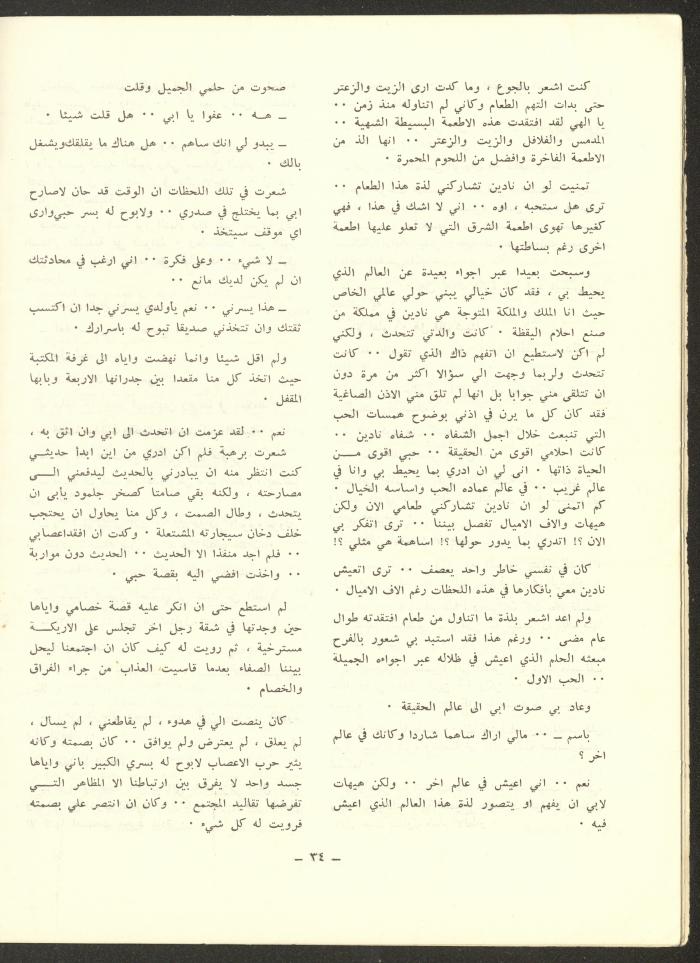 كنت اشعر بالجوع ، وما كدت ارى الزيت والزعتر
حتى بدات التهم الطعام وكاني لم اتناوله منذ زمن ٠٠
يا الهي لقد افتقدت هذه الاطعمة البسيطة الشهية ٠٠
المدمس والفلافل والزيت والزعتر ٠٠ انها الذ من
الاطعمة الفاخرة وافضل من اللحوم المحمرة ٠
تمنيت لو ان نادين تشاركني لذة هذا الطعام ٠٠
ترى هل ستحبه ، اوه ٠٠ اني لا اشك في هذا ، فهي
كغيرها تهوى اطعمة الشرق التي لا تعلو عليها اطعمة
اخرى رغم بساطتها ٠
وسبحت بعيدا عبر اجواء بعيدة عن العالم الذي
يحيط بي ، فقد كان خيالي يبني حولي عالمي الخاص
حيث انا الملك والملكة المتوجة هي نادين في مملكة من
صنع احلام اليقظة ٠ كانت والدتي تتحدث ، ولكني
لم اكن لاستطيع ان اتفهم ذاك الذي تقول ٠٠ كانت
تتحدث ولربما وجهت الي سؤالا اكثر من مرة دون
ان تتلقى مني جوابا بل انها لم تلق مني الاذن الصاغية
فقد كان كل ما يرن في اذني بوضوح همسات الحب
التي تنبعث خلال اجمل الشفاه ٠٠ شفاه نادين ٠٠
كانت احلامي اقوى من الحقيقة ٠٠ حبي اقوى مـــن
الحياة ذاتها ٠ انى لي ان ادري بما يحيط بي وانا في
عالم غريب ٠٠ في عالم عماده الحب واساسه الخيال ٠
كم اتمنى لو ان نادين تشاركني طعامي الان ولكن
هيهات والاف الاميال تفصل بيننا ٠٠ ترى اتفكر بي
الان ؟! اتدري بما يدور حولها ؟! اساهمة هي مثلي ؟!
كان في نفسي خاطر واحد يعصف ٠٠ ترى اتعيش
نادين معي بأفكارها في هذه اللحظات رغم الاف الاميال ٠
ولم اعد اشعر بلذة ما اتناول من طعام افتقدته طوال
عام مضى ٠٠ ورغم هذا فقد استبد بي شعور بالفرح
مبعثه الحلم الذي اعيش في ظلاله عبر اجواءه الجميلة
٠٠ الحب الاول ٠
وعاد بي صوت ابي الى عالم الحقيقة ٠
باسم ــ ٠٠ مالي اراك ساهما شاردا وكانك في عالم
اخر ؟
نعم ٠٠ اني اعيش في عالم اخر ٠٠ ولكن هيهات
لابي ان يفهم او يتصور لذة هذا العالم الذي اعيش
فيه ٠
صحوت من حلمي الجميل وقلت
ــ هــه ٠٠ عفوا يا ابي ٠٠ هل قلت شيئا ٠
ــ يبدو لي انك ساهم ٠٠ هل هناك ما يقلقك‌ويشغل
بالك ٠
شعرت في تلك اللحظات ان الوقت قد حان لاصارح
ابي بما يختلج في صدري ٠٠ ولابوح له بسر حبي‌وارى
اي موقف سيتخذ ٠
ــ لا شيء ٠٠ وعلى فكرة ٠٠ اني ارغب في محادثتك
ان لم يكن لديك مانع ٠٠
ــ هذا يسرني ٠٠ نعم ياولدي يسرني جدا ان اكتسب
ثقتك وان تتخذني صديقا تبوح له باسرارك ٠
ولم اقل شيئا وانما نهضت واياه الى غرفة المكتبة
حيث اتخذ كل منا مقعدا بين جدرانها الاربعة وبابها
المقفل ٠
نعم ٠٠ لقد عزمت ان اتحدث الى ابي وان اثق به ،
شعرت برهبة فلم اكن ادري من اين ابدأ حديثـي
كنت انتظر منه ان يبادرني بالحديث ليدفعني الـــى
مصارحته ، ولكنه بقي صامتا كصخر جلمود يابى ان
يتحدث ، وطال الصمت ، وكل منا يحاول ان يحتجب
خلف دخان سيجارته المشتعلة ٠ وكدت ان افقداعصابي
٠٠ فلم اجد منفذا الا الحديث ٠٠ الحديث دون مواربة
٠٠ واخذت افضي اليه بقصة حبي ٠
لم استطع حتى ان انكر عليه قصة خصامي واياها
حين وجدتها في شقة رجل اخر تجلس على الاريكـــة
مسترخية ، ثم رويت له كيف كان ان اجتمعنا ليحل
بيننا الصفاء بعدما قاسيت العذاب من جراء الفراق
والخصام ٠
كان ينصت الي في هدوء ، لم يقاطعني ، لم يسال ،
لم يعلق ، لم يعترض ولم يوافق ٠٠ كان بصمته وكانه
يثير حرب الاعصاب لابوح له بسري الكبير باني واياها
جسد واحد لا يفرق بين ارتباطنا الا المظاهر التـــي
تفرضها تقاليد المجتمع ٠٠ وكان ان انتصر علي بصمته
فرويت له كل شيء ٠
ــ ٣٤ ــ